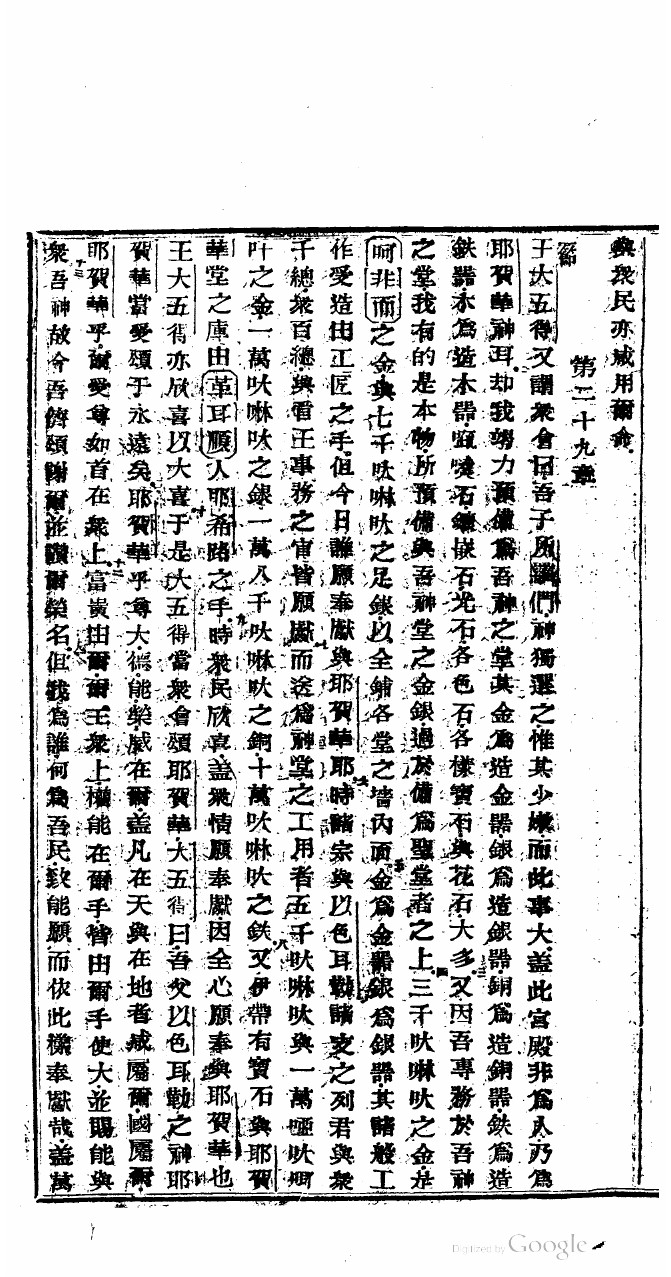 與衆民亦咸用爾命
第二十九章
節
王大五得又謂衆會曰吾子所羅們神獨選之惟其少嫩而此事大蓋此宮殿非爲人乃爲
耶賀華神耳却我努力預備爲吾神之堂其金爲造金器銀爲造銀器銅爲造銅器鉄爲造
鉄器木爲造木器石鑲嵌石光石各色石各樣寶石與花石大多又因吾專務於吾神
之堂我有的是本物所預備與吾神堂之金銀過於備爲聖堂者之上三千吠啉吠之金是
呵非而之金與七千吠啉吠之足銀以全鋪各堂之墻內面金爲金器銀爲銀器其諸般工
作受造由工匠之手但今日誰願奉獻與耶賀華耶時諸宗與以色耳勒諸支之列君與衆
千總衆百總與看王事務之宙皆願獻而送爲神堂之工用者五千吠啉吠與一萬
叶之金一萬吠啉吠之銀一萬八千吠啉吠之銅十萬吠啉吠之鉄又伊帶有寶石與耶賀
華堂之庫由革耳順人耶希路之手時衆民欣喜蓋衆情願奉獻因全心願奉與耶賀華也
王大五得亦欣喜以大喜于是大五得當衆會頌耶賀華大五得曰吾父以色耳勒之神耶
賀華當受頌于永遠矣耶賀華乎尊大德能榮威在爾蓋凡在天與在地者咸屬爾國屬爾
耶賀華乎爾受尊如首在衆上富貴由爾爾王衆上權能在爾手皆由爾手使大並賜能與
衆吾神故今吾儕頌謝爾並讚爾榮名但我爲誰何爲吾民致能願而依此樣奉獻哉蓋萬
Digitized by Google